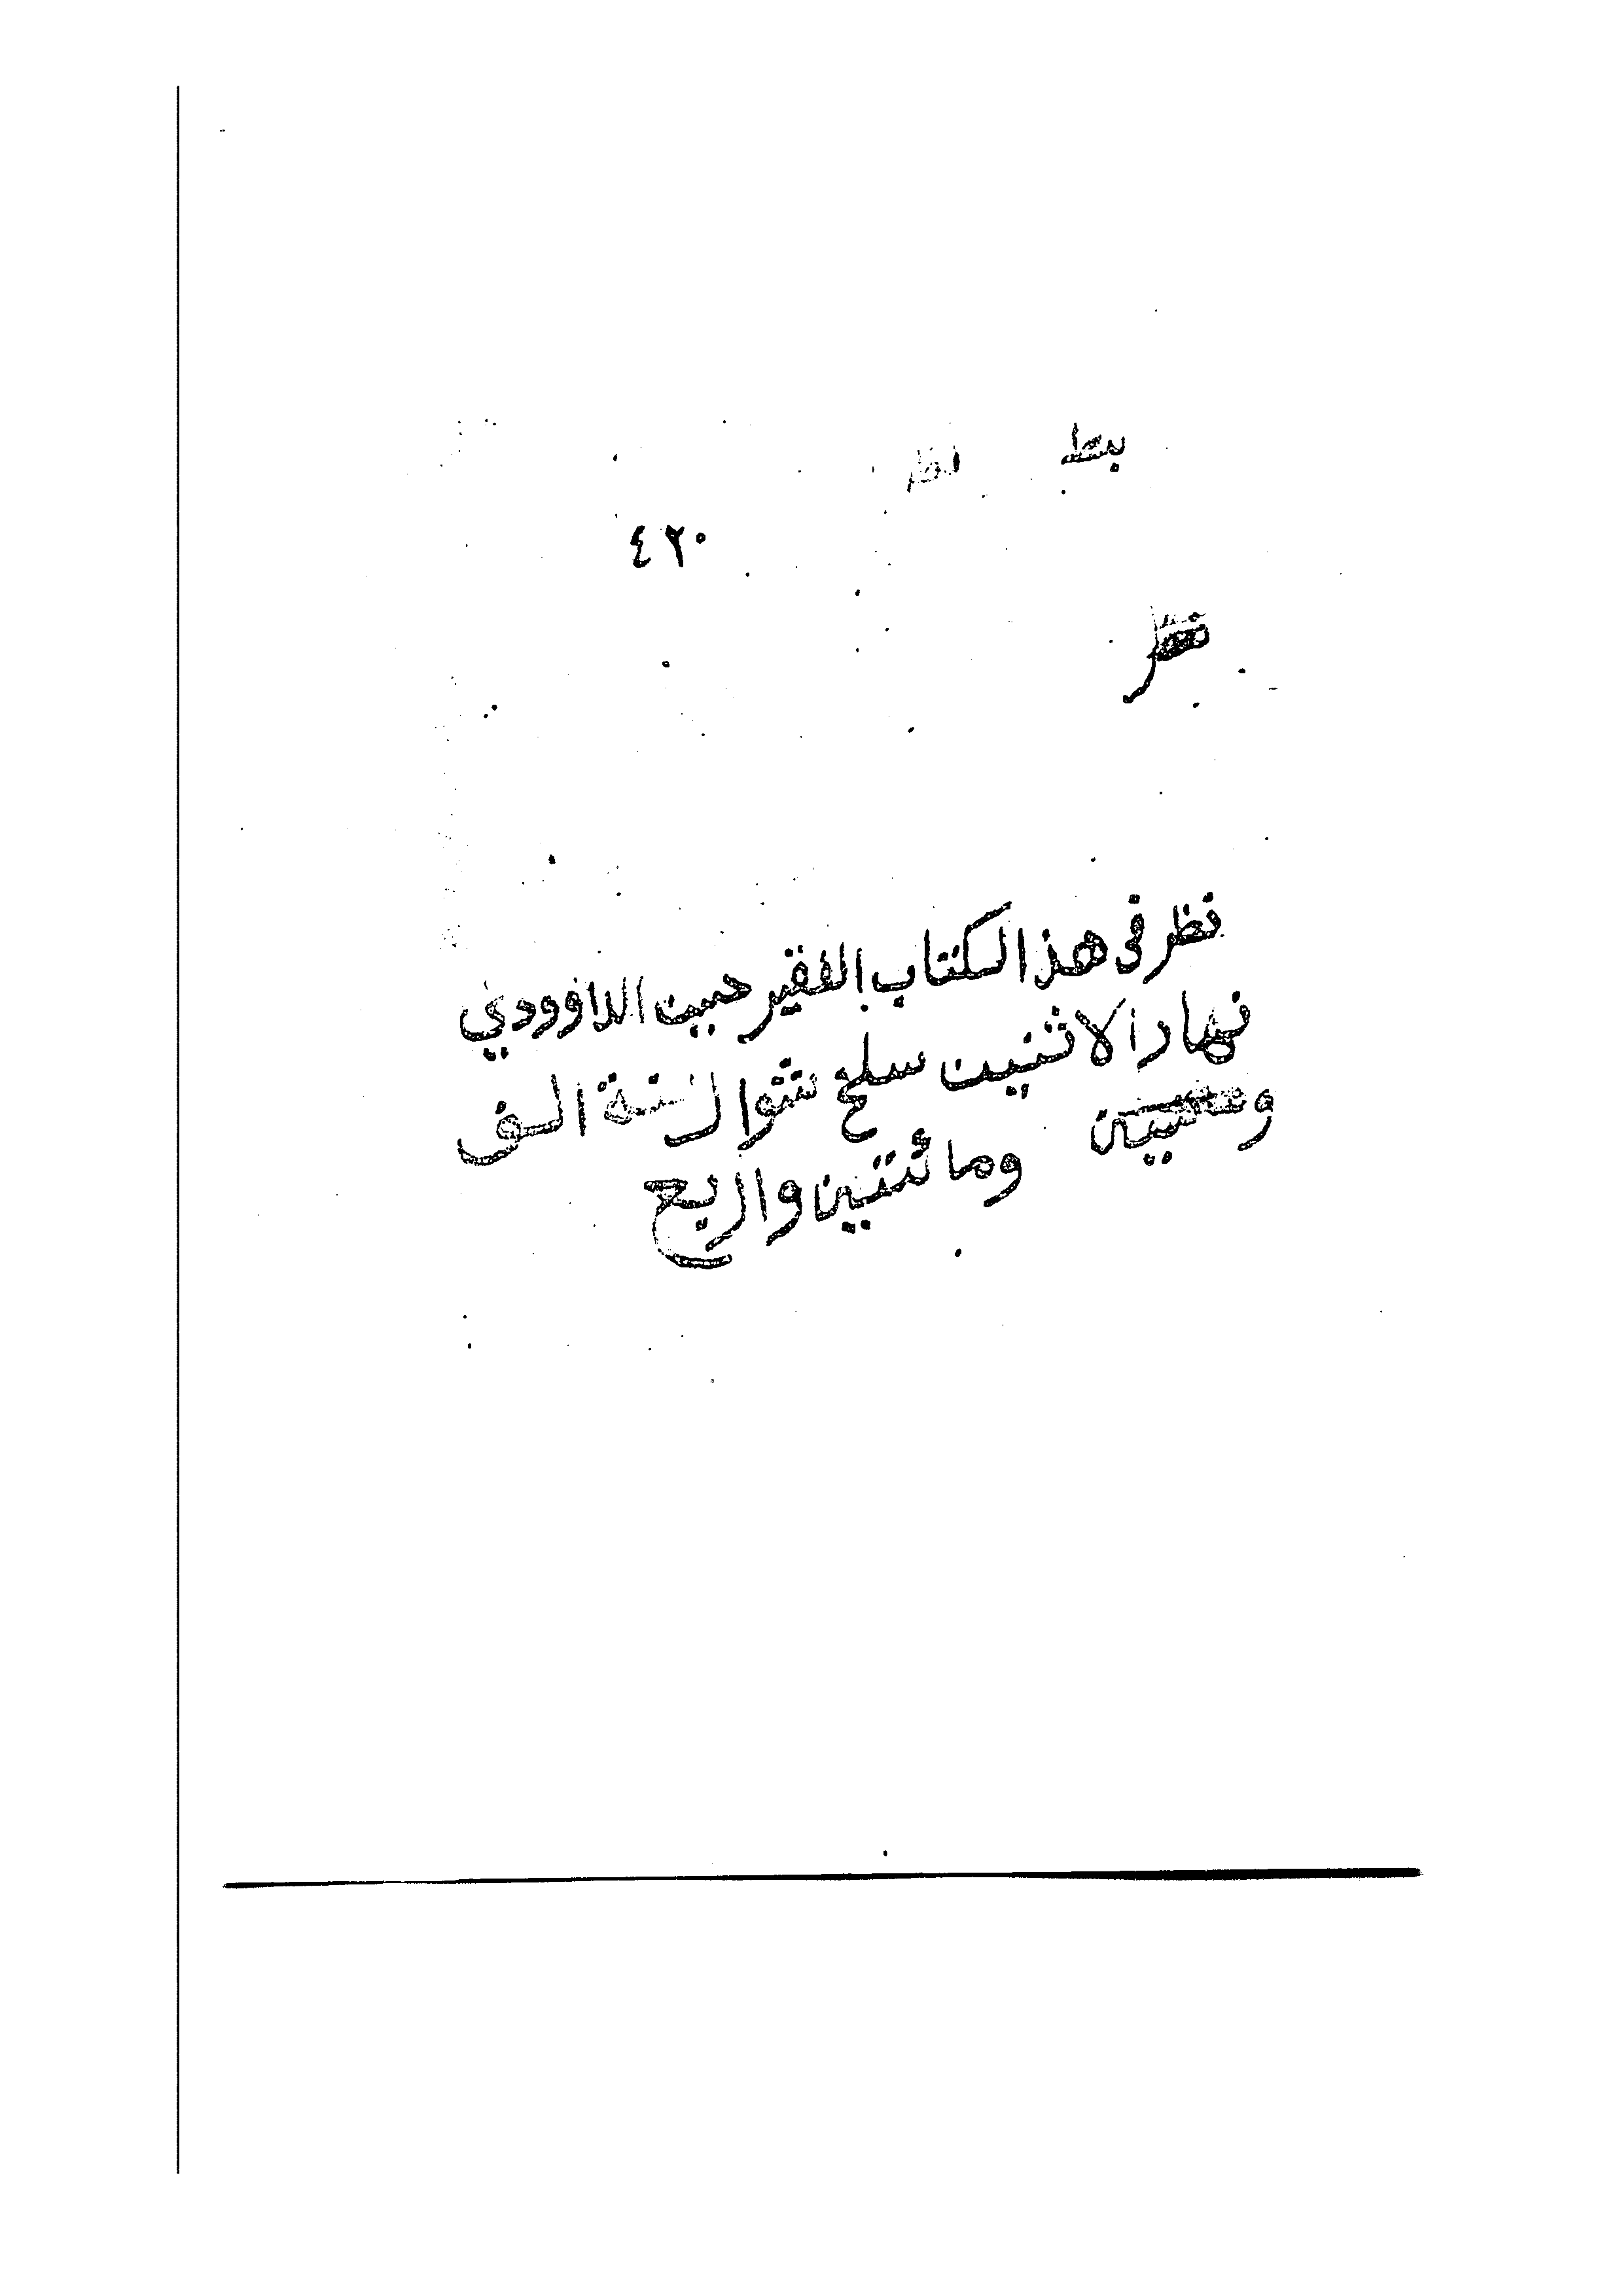 نظر
٤٢٠
نظر
نظر فى هذا الكتاب الفقير حبيب الداؤودي
نهار الاثنين سلخ شوال سنة الف
ومائتين واربع